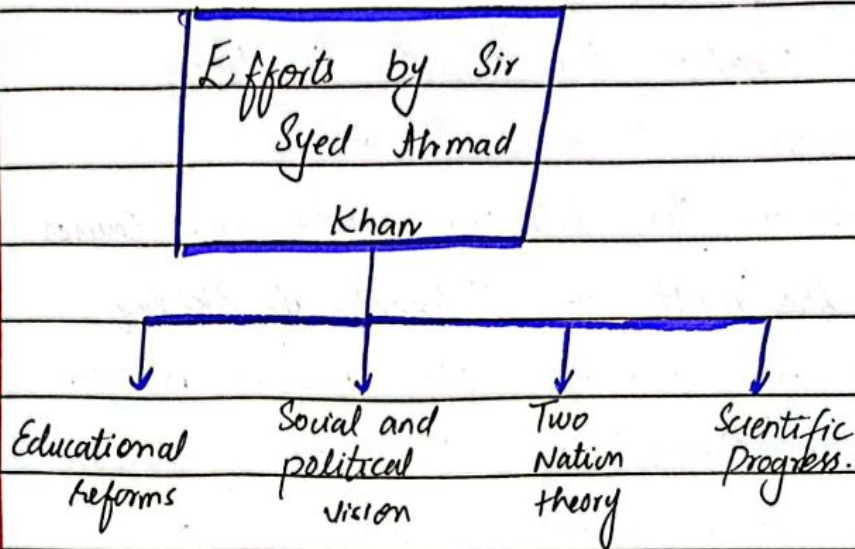 Efforts by Sir
Syed Ahmad
Khan
Educational
reforms
Social and
political
vision
Two
Nation
theory
Scientific
Progress.